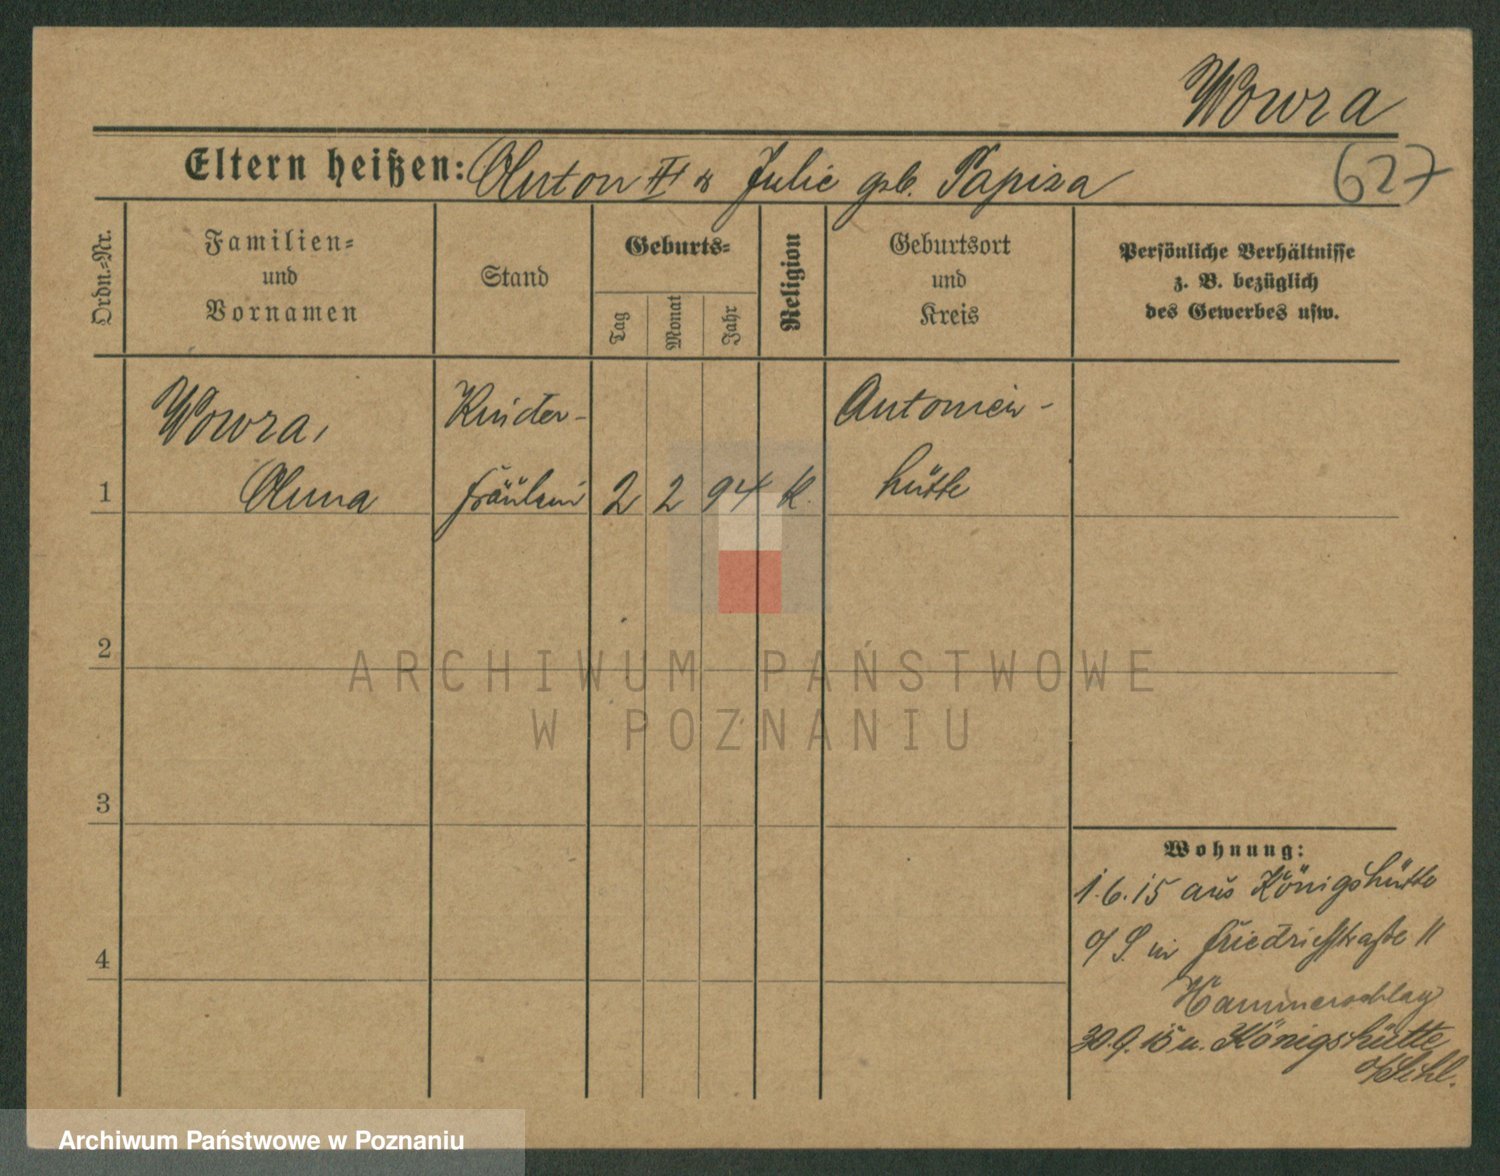 Wowra
627
Eltern heißen: Anton II & Julie geb. Papiza
Ordn.-Nr.
Familien-
und
Vornamen
Stand
Geburts-
Tag
Monat
Jahr
Religion
Geburtsort
und
Kreis
Persönliche Verhältnisse
z. B. bezüglich
des Gewerbes usw.
Wowra,
Kinder-
Antonien-
1
Anna
fräulein
2
2
94
k.
hütte
2
ARCHIWUM PAŃSTWOWE
W POZNANIU
3
Wohnung:
1.6.15 aus Königshütte
o/S. in Friedrichstraße 11
Hammerschlag
4
30.9.15 n. Königshütte
o/Schl.
Archiwum Państwowe w Poznaniu